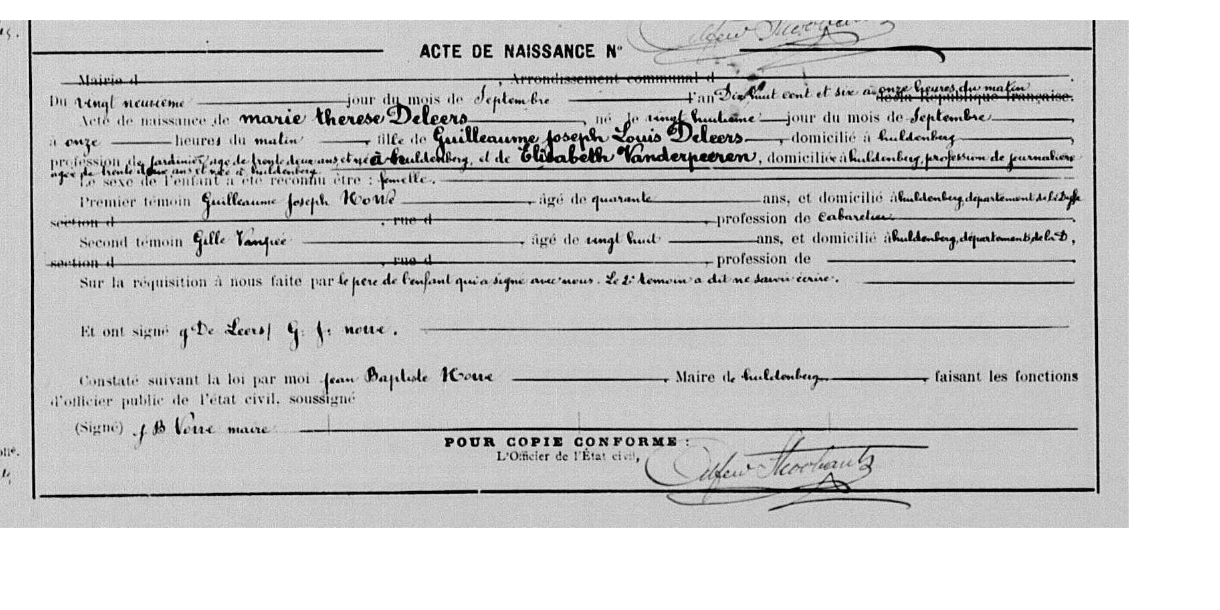 ACTE DE NAISSANCE N°
Mairie d , Arrondissement communal d
Du vingt neuvieme jour du mois de Septembre l'an Dix huit cent et six à onze heures du matin de la République française.
Acte de naissance de marie therese Deleers , né le vingt huitieme jour du mois de Septembre ,
à onze heures du matin , fille de Guilleaume Joseph Louis Deleers , domicilié à huldenberg ,
profession de jardinier, age de trente deux ans et né à huldenberg, et de Elisabeth Vanderpeeren, domiciliée à huldenberg, profession de journaliere
agée de trente deux ans et née à huldenberg
Le sexe de l'enfant a été reconnu être : femelle.
Premier témoin Guilleaume Joseph Norre , âgé de quarante ans, et domicilié à huldenberg, département de la Dyle
section d , rue d , profession de Cabaretier
Second témoin Gille Vanpée , âgé de vingt huit ans, et domicilié à huldenberg, département de la D,
section d , rue d , profession de
Sur la réquisition à nous faite par le pere de l'enfant qui a signé avec nous. Le 2e temoin a dit ne savoir écrire.
Et ont signé g De Leers / G. J: norre.
Constaté suivant la loi par moi Jean Baptiste Norre , Maire de huldenberg , faisant les fonctions
d'officier public de l'état civil, soussigné
(Signé) J B Norre maire
POUR COPIE CONFORME :
L'Officier de l'État civil,